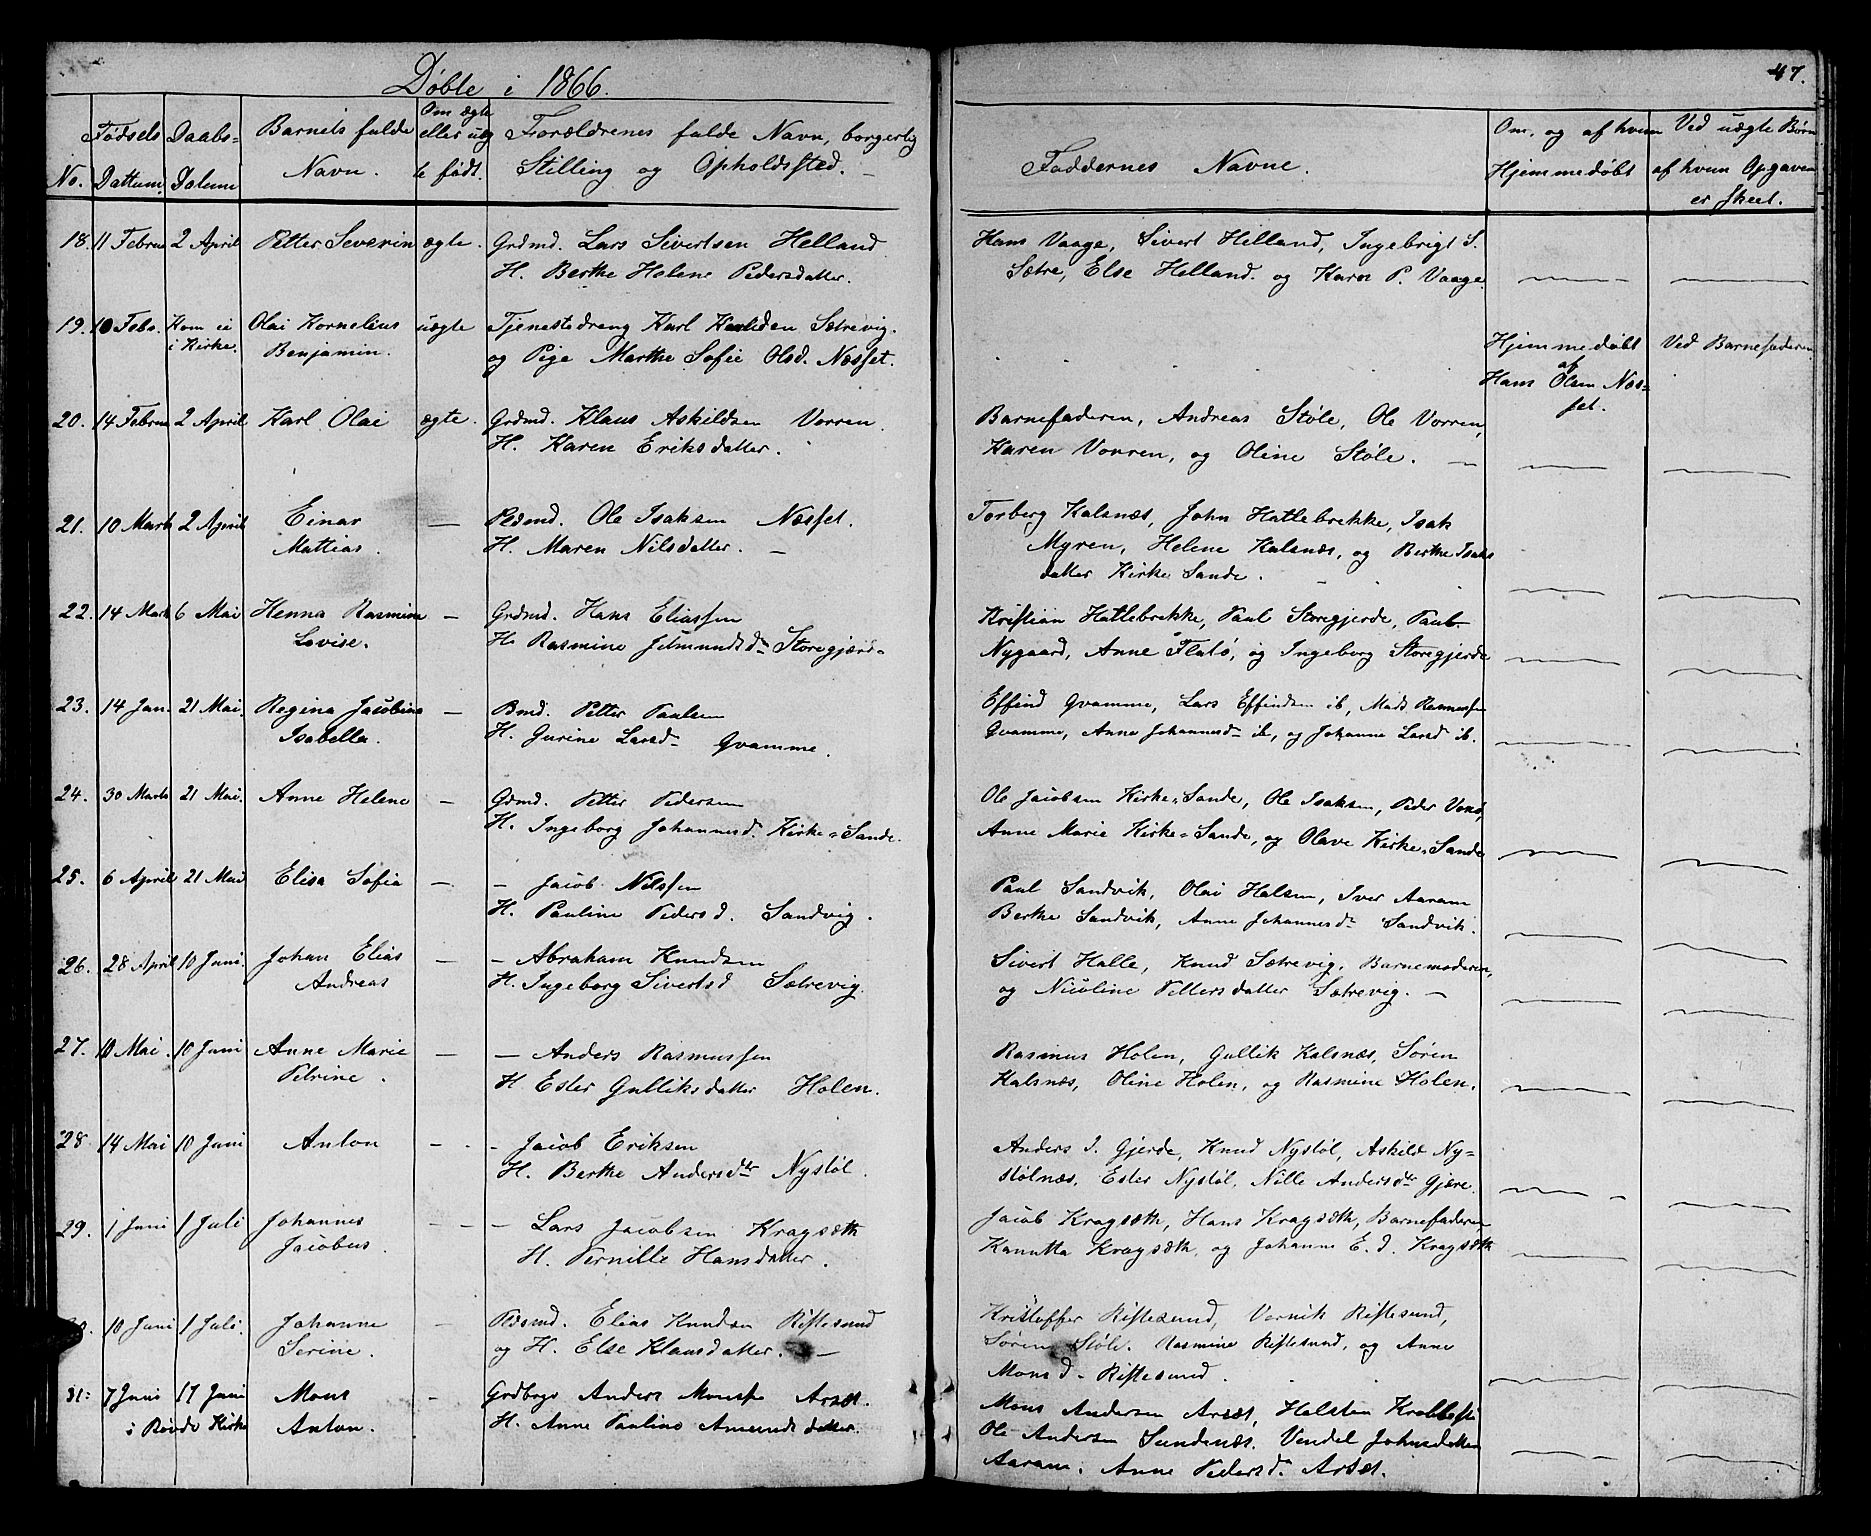 Døbte i 1866.
47.
No.
Fødsels Dattum.
Daabs- Datum
Barnets fulde Navn.
Om ægte eller uægte født.
Forældrenes fulde Navn, borgerlig Stilling og Opholdssted.
Faddernes Navne.
Om, og af hvem Hjemmedøbt
Ved uægte Børn af hvem Opgaven er skeet.
18. 11 Februar 2 April Petter Severin ægte. Grdmd. Lars Sivertsen Helland
H. Berthe Helene Pedersdatter.
Hans Vaage, Sivert Helland, Ingebrigt S.
Sætre, Else Helland. og Karn P. Vaage.
19. 10 Febr. Kom ei i Kirke. Olai Kornelius uægte Tjenestedreng Karl Sætrevig.
Benjamin. og Pige Marthe Sofie Olsd. Næsset.
Hjemmedøbt af Hans Olsen Næsset.
Ved Barnefaderen
20. 14 Februar 2 April Karl Olai ægte. Grdmd. Klaus Askildsen Vorren.
H. Karen Eriksdatter.
Barnefaderen, Andreas Støle, Ole Vorren,
Karen Vorren, og Oline Støle. —
21. 10 Marts 2 April Einar — Pldsmd. Ole Isaksen Næsset.
Mattias. H. Maren Nilsdatter. —
Torberg Kalsnæs, John Hattebrekke, Isak
Myren, Helene Kalsnæs, og Berthe Isaks
datter Kirke Sande.
22. 14 Marts 6 Mai Henna Rasmine — Grdmd. Hans Eliassen
Lovise. H. Rasmine Jetmundsd. Storegjærde
Kristian Hattebrekke, Paul Storegjerde, Paul
Nygaard, Anne Flatø, og Ingeborg Storegjerde
23. 14 Jan. 21 Mai. Regina Jacobine — Bmd. Petter Paulsen
Isabella. H. Jurine Larsd. Gvamme.
Effind Gvamme, Lars Effindsen ib, Mads Rasmussen
Gvamme, Anne Johannesd. ib, og Johanne Larsd ib.
24. 30 Marts 21 Mai. Anne Helene — Grdmd. Petter Pedersen
H. Ingeborg Johannesd. Kirke-Sande.
Ole Jacobsen Kirke-Sande, Ole Isaksen, Peder Vorrø,
Anne Marie Kirke-Sande, og Olave Kirke-Sande
25. 6 April 21 Mai Elisa Sofia — — Jacob Nilssen
H. Pauline Pedersd. Sandvig.
Paul Sandvik, Olai Halsen, Iver Aaram
Berthe Sandvik, Anne Johannesd. Sandvik.
26. 28 April 10 Juni. Johan Elias — — Abraham Knudsen
Andreas H. Ingeborg Sivertsd Sætrevig.
Sivert Halle, Knud Sætrevig, Barnemoderen,
og Nicoline Pettersdatter Sætrevig. —
27. 10 Mai. 10 Juni Anne Marie — — Anders Rasmussen
Petrine. H Ester Gulliksdatter Holen.
Rasmus Holen, Gullik Kalsnæs, Søren
Kalsnæs, Oline Holen, og Rasmine Holen.
28 14 Mai 10 Juni Anton — - Jacob Eriksen
H. Berthe Andersdtr Nystøl.
Anders J. Gjerde, Knud Nystøl, Askild Ny-
stølnæs, Ester Nystøl, Nille Andersdtr Gjære.
29. 1 Juni 1 Juli Johannes — — Lars Jacobsen Kragsæth
Jacobus. H. Pernille Hansdatter.
Jacob Kragsæth, Hans Kragsæth, Barnefaderen
Kanutta Kragsæth, og Johanne E. d. Kragsæth
30. 10 Juni 1 Juli. Johanne — Pldsmd. Elias Knudsen Ristesund
Serine. og H. Else Klausdatter. —
Kristoffer Ristesund, Vernik Ristesund,
Søren Støle. Rasmine Ristesund, og Anne
Monsd. Ristesund.
31. 7 Juni 17 Juni Mons — Grdbrgr Anders Monsen Arset.
i Rovde Kirke Anton. H. Anne Pauline Amundsdatter.
Mons Andersen Arset, Halsten
Ole Andersen Sundenæs. Vendel Johnsdatter
Aaram. Anne Pedersd. Arset.